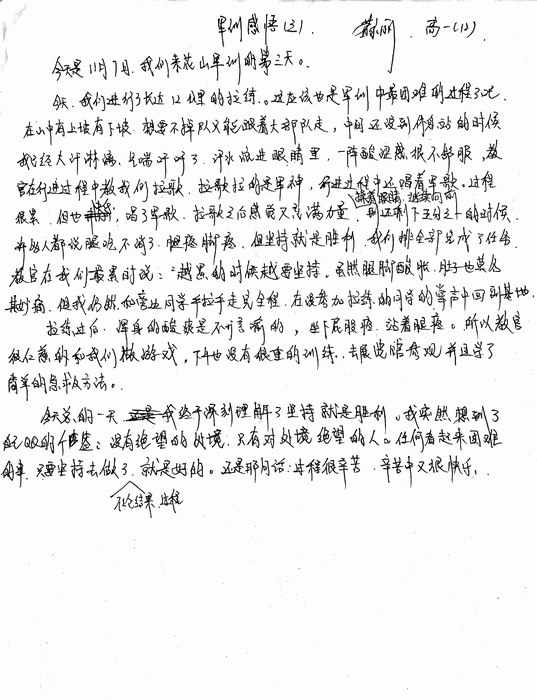 军训感悟(三) 高一(12)
今天是11月7日,我们来花山军训的第三天。
今天,我们进行了长达12公里的拉练。这应该也是军训中最困难的过程了吧。
在山中有上坡有下坡,想要不掉队又能跟着大部队走,中间还没到休息站的时候
我已经大汗淋漓,气喘吁吁了,汗水流进眼睛里,一阵酸涩感很不舒服,教
官在行进过程中教我们拉歌,拉歌拉的是军神,行进过程中还唱着军歌。过程
很累,但也,唱了军歌,拉歌之后感觉又充满力量,到还剩下五分之一的时候,
许多人都说腿吃不消了,腿疼脚疼,但坚持就是胜利,我们排全部完成了任务
教官在我们最累时说:越累的时候越要坚持。虽然腿脚酸胀,肚子也莫名
其妙痛,但我仍然和营业同学手拉手走完全程,在没参加拉练的同学的掌声中回到基地。
拉练过后,浑身的酸爽是不可言喻的,坐下屁股疼,站着腿疼。所以教官
很仁慈的和我们做游戏,下午也没有很重的训练,去展览馆参观并且学了
简单的急救方法。
今天总的一天,我终于深刻理解了坚持就是胜利。我突然想到了
QQ的个签:没有绝望的处境,只有对处境绝望的人。任何看起来困难
的事,只要坚持去做了,就是好的。还是那句话:过程很辛苦,辛苦中又很快乐。
不论结果、过程